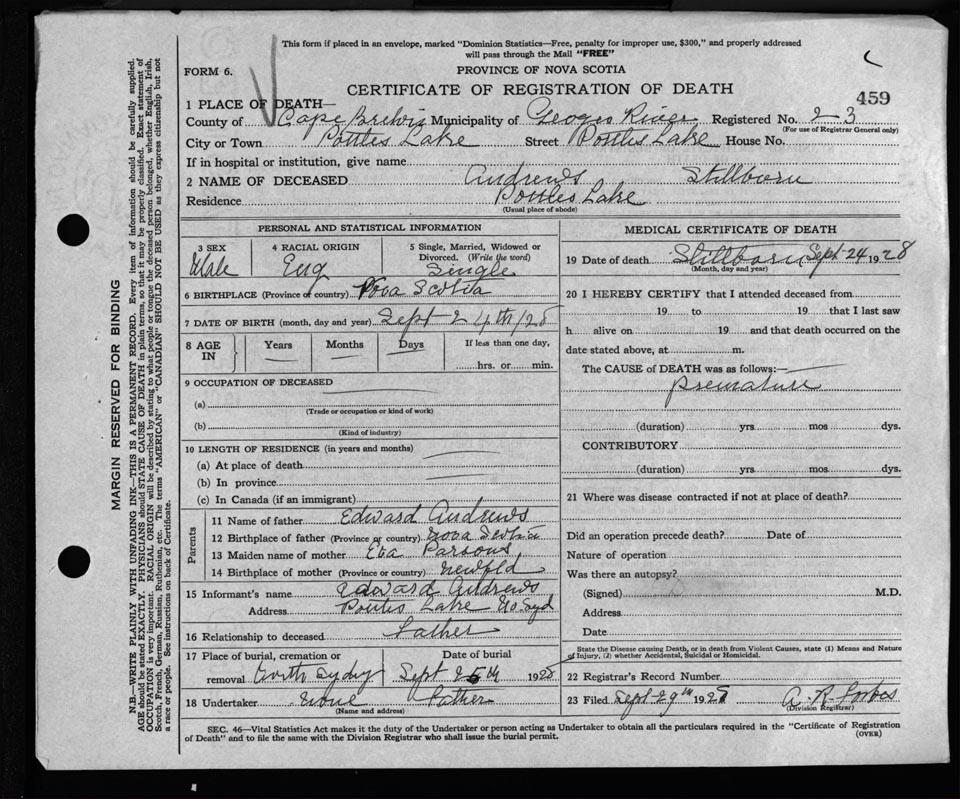 This form if placed in an envelope, marked "Dominion Statistics—Free, penalty for improper use, $300," and properly addressed
will pass through the Mail "FREE"
FORM 6.
PROVINCE OF NOVA SCOTIA
CERTIFICATE OF REGISTRATION OF DEATH
459
1 PLACE OF DEATH—
County of Cape Breton Municipality of Georges River Registered No. 23
(For use of Registrar General only)
City or Town Pottles Lake Street Pottles Lake House No.
If in hospital or institution, give name
2 NAME OF DECEASED Andrews Stillborn
Residence Pottles Lake
(Usual place of abode)
PERSONAL AND STATISTICAL INFORMATION
3 SEX Male
4 RACIAL ORIGIN Eng
5 Single, Married, Widowed or Divorced. (Write the word) Single
6 BIRTHPLACE (Province or country) Nova Scotia
7 DATE OF BIRTH (month, day and year) Sept 24th/28
8 AGE IN Years Months Days If less than one day, hrs. or min.
9 OCCUPATION OF DECEASED
(a)
(Trade or occupation or kind of work)
(b)
(Kind of industry)
10 LENGTH OF RESIDENCE (in years and months)
(a) At place of death
(b) In province
(c) In Canada (if an immigrant)
Parents
11 Name of father Edward Andrews
12 Birthplace of father (Province or country) Nova Scotia
13 Maiden name of mother Eva Parsons
14 Birthplace of mother (Province or country) Newfld
15 Informant's name Edward Andrews
Address Pottles Lake No. Syd
16 Relationship to deceased Father
17 Place of burial, cremation or removal North Sydy
Date of burial Sept 25th 1928
18 Undertaker None Father
(Name and address)
MEDICAL CERTIFICATE OF DEATH
19 Date of death Stillborn Sept 24 1928
(Month, day and year)
20 I HEREBY CERTIFY that I attended deceased from
19 to 19 that I last saw
h alive on 19 and that death occurred on the
date stated above, at m.
The CAUSE of DEATH was as follows:—
Premature
(duration) yrs mos dys.
CONTRIBUTORY
(duration) yrs mos dys.
21 Where was disease contracted if not at place of death?
Did an operation precede death? Date of
Nature of operation
Was there an autopsy?
(Signed) M.D.
Address
Date
State the Disease causing Death, or in death from Violent Causes, state (1) Means and Nature
of Injury, (2) whether Accidental, Suicidal or Homicidal.
22 Registrar's Record Number
23 Filed Sept 29th 1928 A. R. Forbes
(Division Registrar)
SEC. 46—Vital Statistics Act makes it the duty of the Undertaker or person acting as Undertaker to obtain all the particulars required in the "Certificate of Registration
of Death" and to file the same with the Division Registrar who shall issue the burial permit.
(OVER)
MARGIN RESERVED FOR BINDING
N.B.—WRITE PLAINLY WITH UNFADING INK—THIS IS A PERMANENT RECORD. Every item of information should be carefully supplied.
AGE should be stated EXACTLY. PHYSICIANS should STATE CAUSE OF DEATH in plain terms, so that it may be properly classified. Exact statement of
OCCUPATION is very important. RACIAL ORIGIN will be described by stating to what people or tongue the deceased person belonged, whether English, Irish,
Scotch, French, German, Russian, Ruthenian, etc. The terms "AMERICAN" or "CANADIAN" SHOULD NOT BE USED as they express citizenship but not
a race or people. See instructions on back of Certificate.